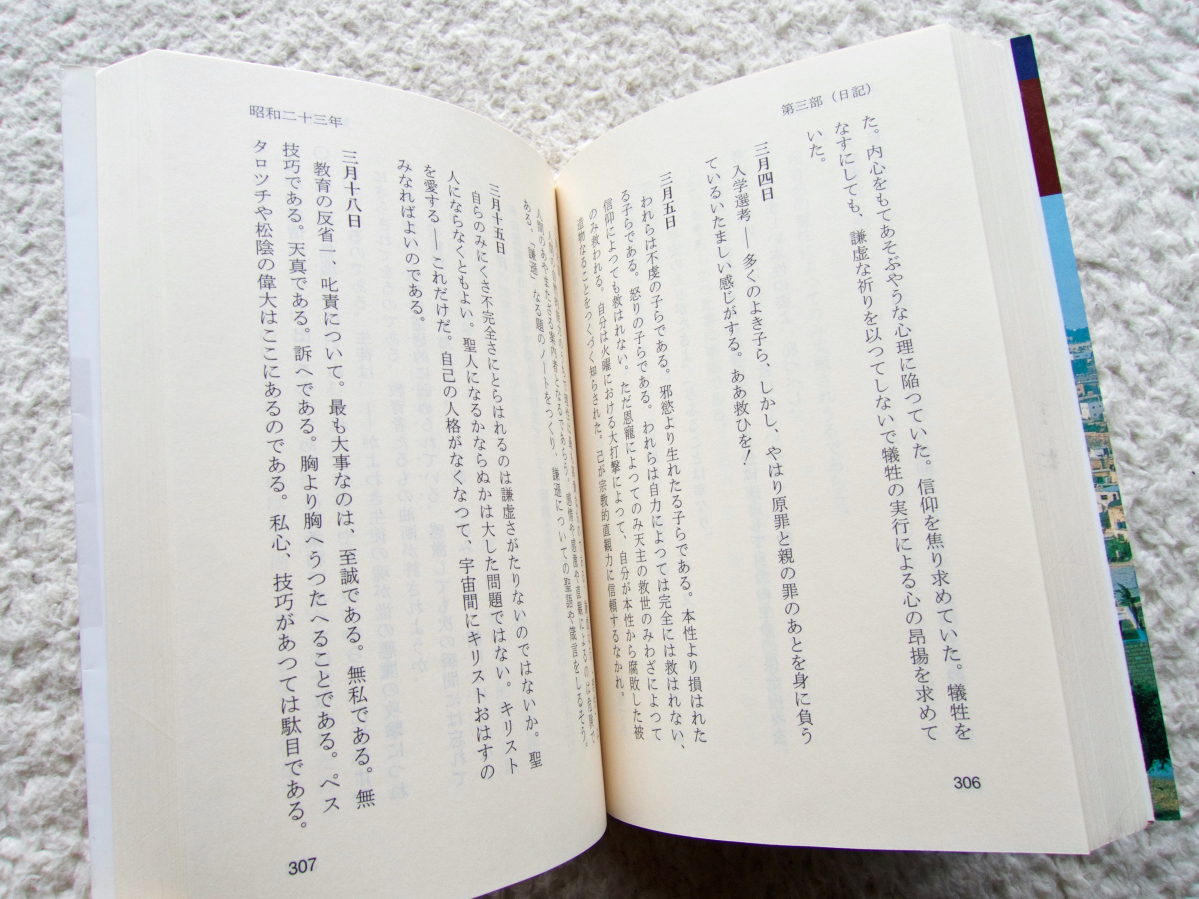 第三部（日記）
た。内心をもてあそぶやうな心理に陥つていた。信仰を焦り求めていた。犠牲を
なすにしても、謙虚な祈りを以つてしないで犠牲の実行による心の昂揚を求めて
いた。
三月四日
入学選考——多くのよき子ら、しかし、やはり原罪と親の罪のあとを身に負う
ているいたましい感じがする。ああ救ひを！
三月五日
われらは不虔の子らである。邪慾より生れたる子らである。本性より損はれた
る子らである。怒りの子らである。われらは自力によつては完全には救はれない、
信仰によつても救はれない。ただ恩寵によつてのみ天主の救世のみわざによつて
のみ救われる。自分は火曜における大打撃によつて、自分が本性から腐敗した被
造物なることをつくづく知らされた。己が宗教的直観力に信頼するなかれ。
306
昭和二十三年
人間のあやまたざる案内者となるであらう。感情や感激や直観によるのは危険で
ある。「謙遜」なる題のノートをつくり、謙遜についての聖語や箴言をしるそう。
三月十五日
自らのみにくさ不完全さにとらはれるのは謙虚さがたりないのではないか。聖
人にならなくともよい。聖人になるかならぬかは大した問題ではない。キリスト
を愛する——これだけだ。自己の人格がなくなつて、宇宙間にキリストおはすの
みなればよいのである。
三月十八日
教育の反省一、叱責について。最も大事なのは、至誠である。無私である。無
技巧である。天真である。訴へである。胸より胸へうつたへることである。ペス
タロツチや松陰の偉大はここにあるのである。私心、技巧があつては駄目である。
307